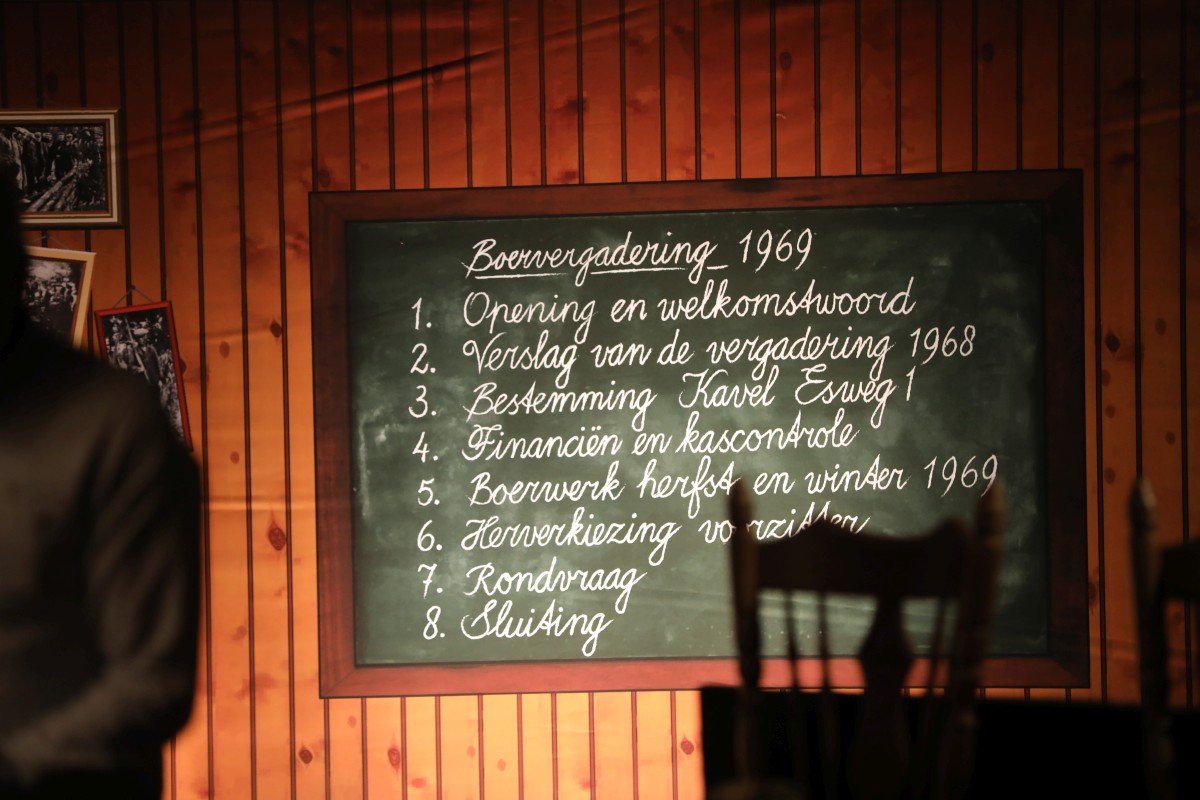 Boervergadering 1969
1. Opening en welkomstwoord
2. Verslag van de vergadering 1968
3. Bestemming Kavel Esweg 1
4. Financiën en kascontrole
5. Boerwerk herfst en winter 1969
6. Herverkiezing voorzitter
7. Rondvraag
8. Sluiting